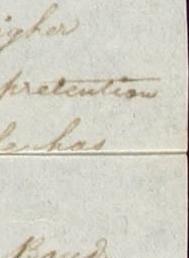 igher
pretention
lenhas
Band